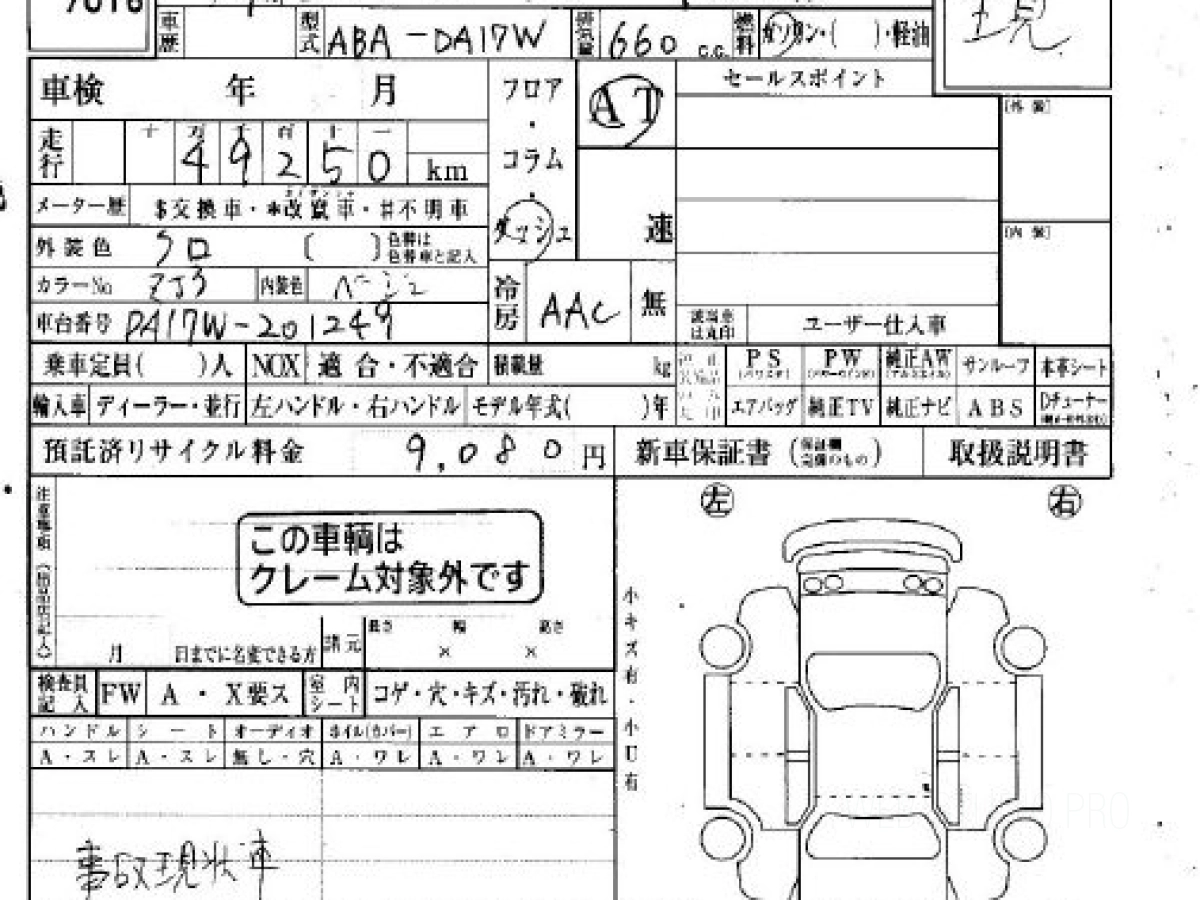 7016
車歴 型式 ABA-DA17W 排気量 660 C.C. 燃料 ガソリン・( )・軽油
車検 年 月 フロア・コラム・ダッシュ AT セールスポイント
[外装]
走行 十 万 千 百 十 一 49250 km
メーター歴 $交換車・*改竄車・#不明車
速
[内装]
外装色 クロ ( ) 色替は色替車と記入
カラーNo ZJ3 内装色 ベージュ
冷房 AAC 無
車台番号 DA17W-201249
該当車は丸印 ユーザー仕入車
乗車定員( )人 NOX 適合・不適合 積載量 kg PS (パワステ) PW (パワーウインド) 純正AW (アルミホイル) サンルーフ 本革シート
輸入車 ディーラー・並行 左ハンドル・右ハンドル モデル年式( )年 エアバッグ 純正TV 純正ナビ ABS Dチューナー
預託済リサイクル料金 9,080 円 新車保証書 (保証欄完備のもの) 取扱説明書
左 右
注意事項(出品店記入)
この車輌は
クレーム対象外です
月 日までに名変できる方 諸元 長さ × 幅 × 高さ
小キズ有・小U有
検査員記入 FW A・X要ス 室内シート コゲ・穴・キズ・汚れ・破れ
ハンドル シート オーディオ ホイル(カバー) エアロ ドアミラー
A・スレ A・スレ 無し・穴 A・ワレ A・ワレ A・ワレ
事故現状車
PRO